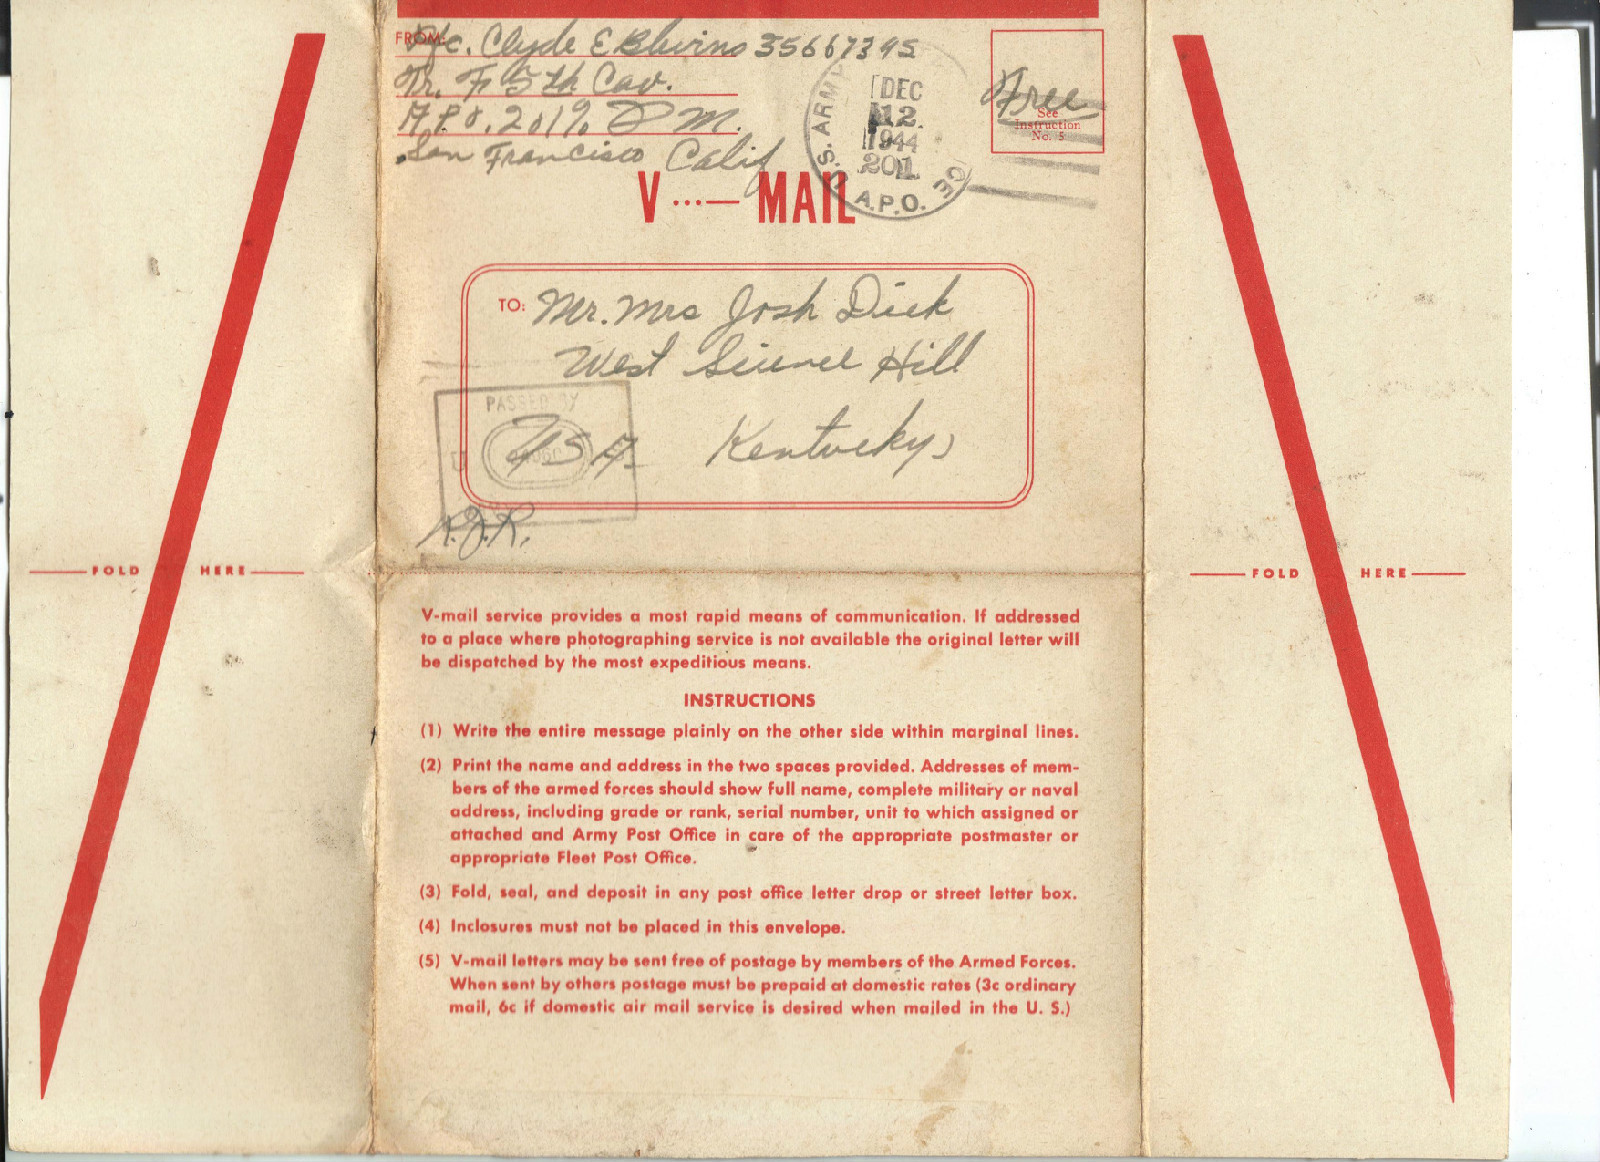 FROM:
Pfc. Clyde E Blevins 35667395
Tr. F 5th Cav.
A.P.O. 201 % P M.
San Francisco Calif
U.S. ARMY
DEC
12
1944
201
A.P.O.
Free
See
Instruction
No. 5
V ···— MAIL
TO: Mr. Mrs Josh Dick
West Hill
USA Kentucky
PASSED BY
R.J.R.
FOLD HERE
FOLD HERE
V-mail service provides a most rapid means of communication. If addressed
to a place where photographing service is not available the original letter will
be dispatched by the most expeditious means.
INSTRUCTIONS
(1) Write the entire message plainly on the other side within marginal lines.
(2) Print the name and address in the two spaces provided. Addresses of mem-
bers of the armed forces should show full name, complete military or naval
address, including grade or rank, serial number, unit to which assigned or
attached and Army Post Office in care of the appropriate postmaster or
appropriate Fleet Post Office.
(3) Fold, seal, and deposit in any post office letter drop or street letter box.
(4) Inclosures must not be placed in this envelope.
(5) V-mail letters may be sent free of postage by members of the Armed Forces.
When sent by others postage must be prepaid at domestic rates (3c ordinary
mail, 6c if domestic air mail service is desired when mailed in the U. S.)